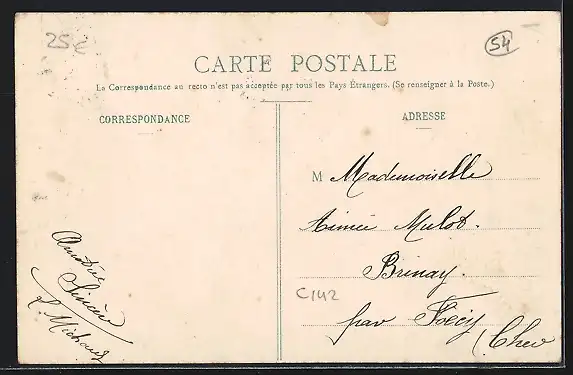 25€
54
CARTE POSTALE
La Correspondance au recto n'est pas acceptée par tous les Pays Étrangers. (Se renseigner à la Poste.)
CORRESPONDANCE
ADRESSE
M Mademoiselle
Aimée Mulot.
Brinay.
C142
par Foëcy
(Cher
Amitiée
Sincère
L. Michaud